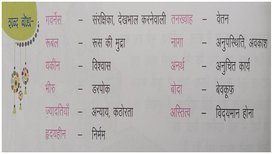 शब्द बोध-
गवर्नेस – संरक्षिका, देखभाल करनेवाली तनख्वाह – वेतन
रूबल – रूस की मुद्रा नागा – अनुपस्थिति, अवकाश
यकीन – विश्वास अनर्थ – अनुचित कार्य
भीरु – डरपोक बोदा – बेवकूफ़
ज्यादतियाँ – अन्याय, कठोरता अस्तित्व – विद्यमान होना
हृदयहीन – निर्मम